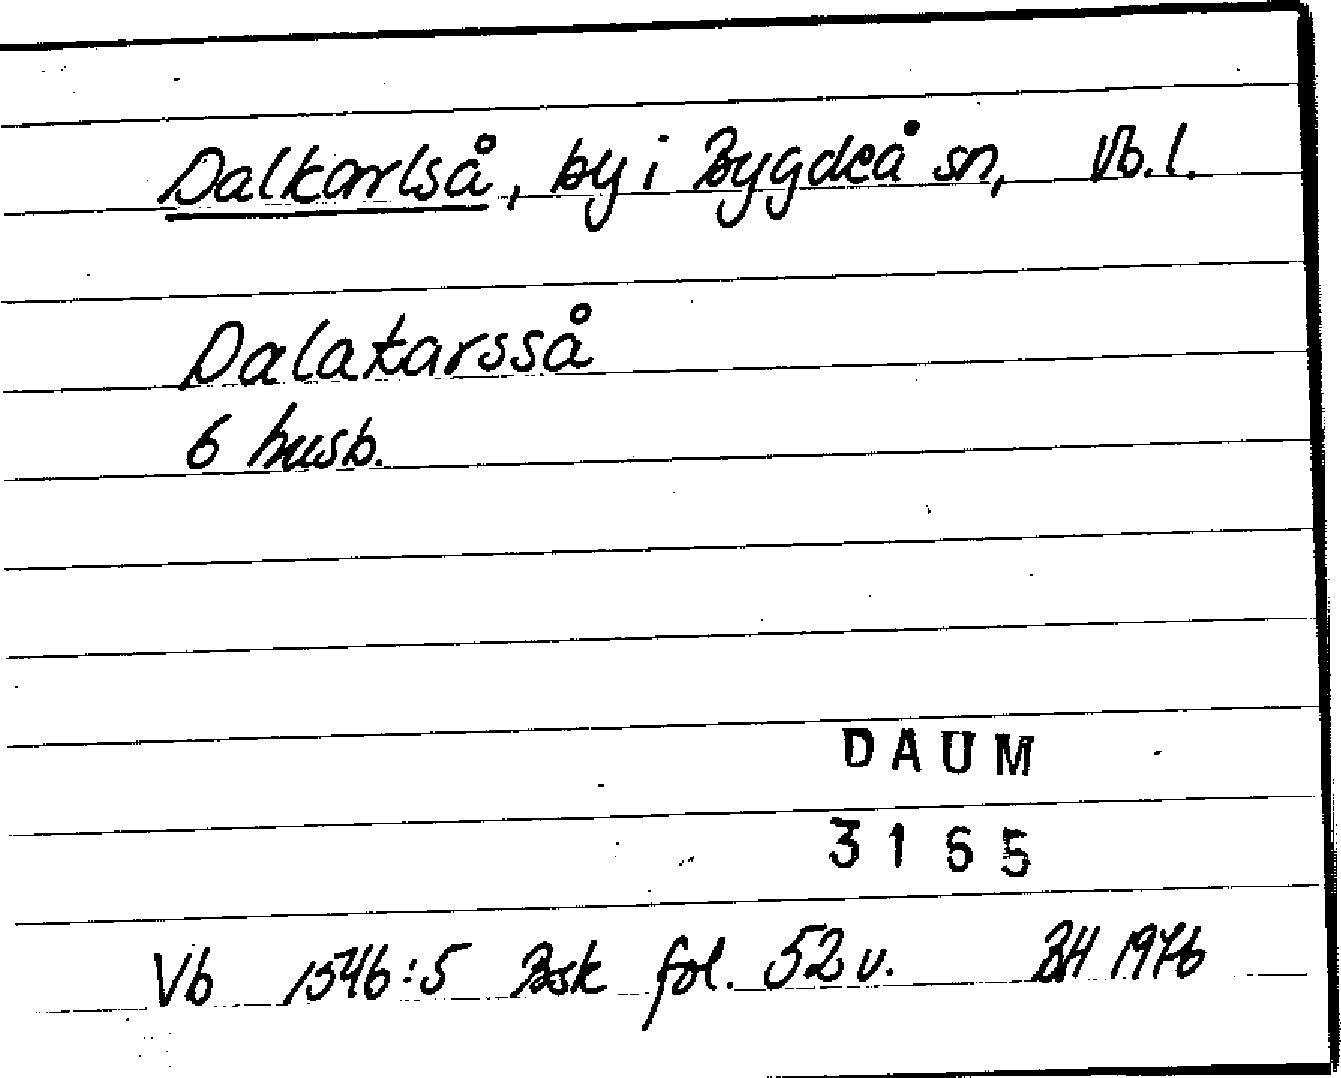 Dalkarlså, by i Bygdeå sn, Vb.l.
Dalakarsså
6 husb.
DAUM
3165
Vb 1546:5 Bsk fol. 52 v. BH 1976